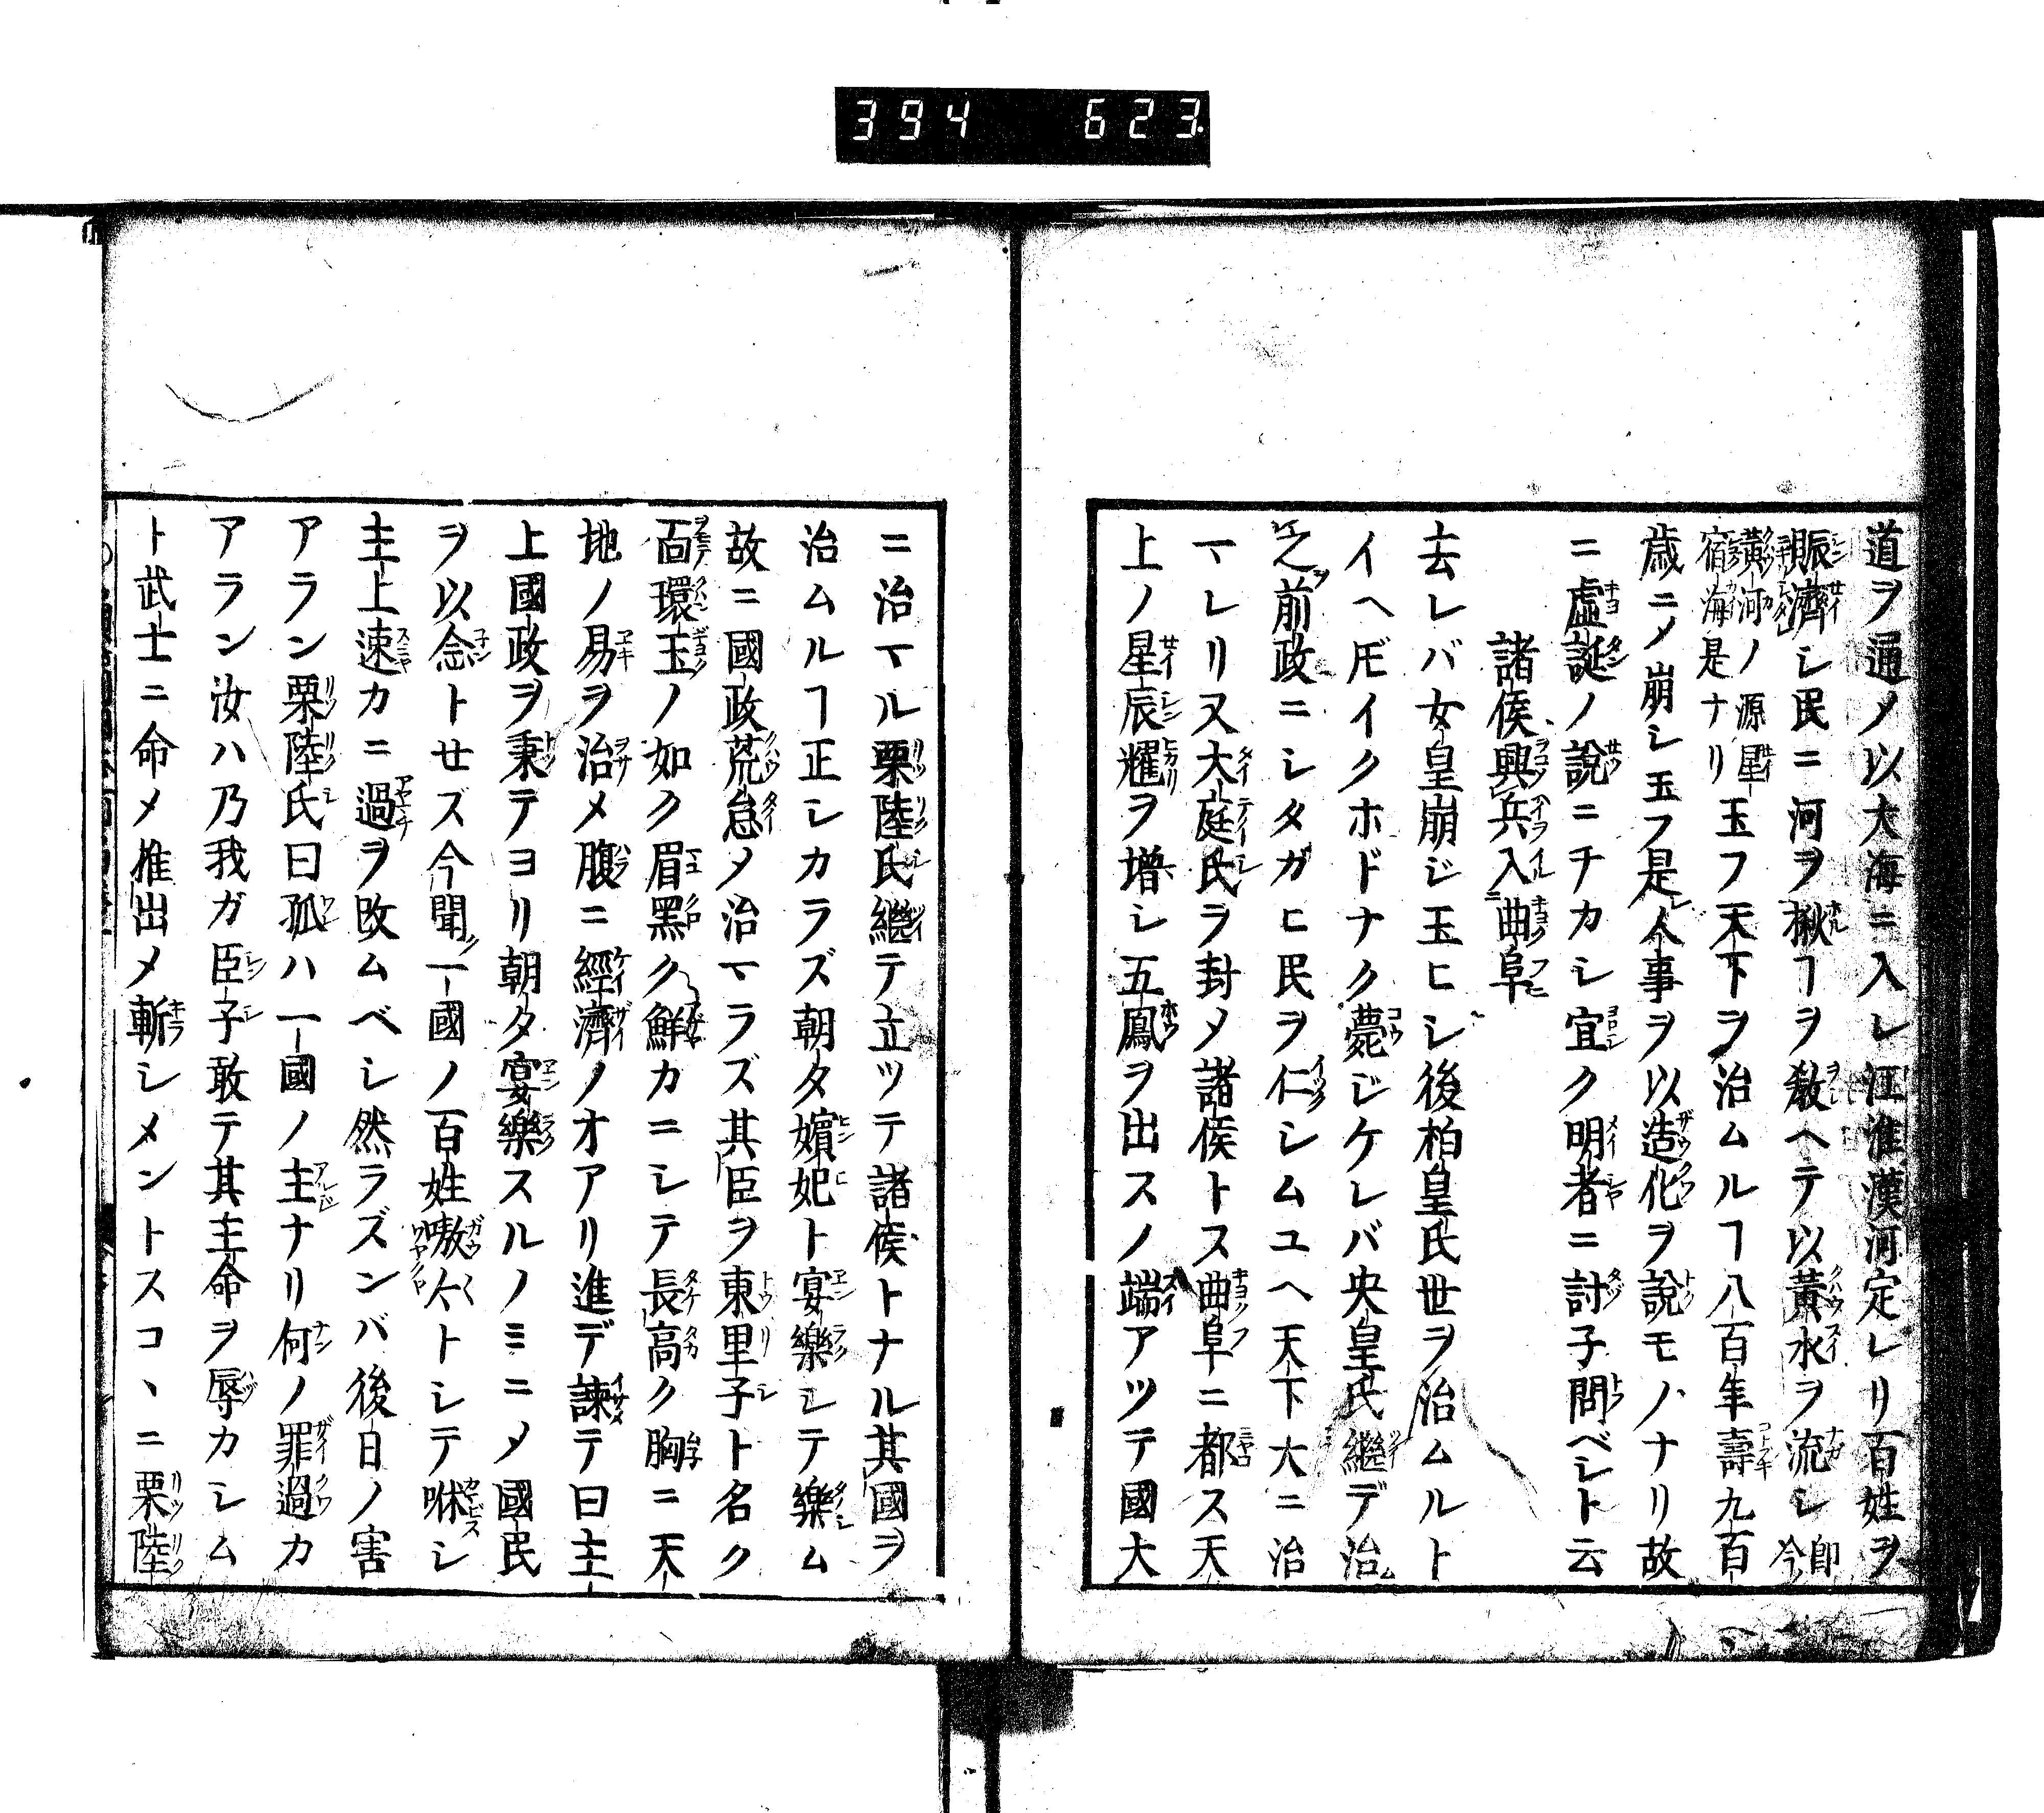 394 623
道ヲ通メ以大海ニ入レ江淮漢河定レリ百姓ヲ
賑濟シ民ニ河ヲ楸ヿヲ敎ヘテ以黃水ヲ流シ即今
黃河ノ源星宿海是ナリ玉フ天下ヲ治ムルヿ八百年壽九百
歳ニメ崩シ玉フ是人事ヲ以造化ヲ說モノナリ故
ニ虛誕ノ說ニチカシ宜ク明者ニ討子問ベシト云
諸侯興兵入曲阜
去レバ女皇崩ジ玉ヒシ後柏皇氏世ヲ治ムルト
イヘ𪜈イクホドナク薨ジケレバ央皇氏繼デ治
之前政ニシタガヒ民ヲ仁シムユヘ天下大ニ治
マレリ又大庭氏ヲ封メ諸侯トス曲阜ニ都ス天
上ノ星辰耀ヲ增シ五鳳ヲ出スノ端アツテ國大
ニ治マル栗陸氏繼テ立ツテ諸侯トナル其國ヲ
治ムルヿ正シカラズ朝夕嬪妃ト宴樂シテ樂ム
故ニ國政荒怠メ治マラズ其臣ヲ東里子ト名ク
面環玉ノ如ク眉黑ク鮮カニシテ長高ク胸ニ天
地ノ易ヲ治メ腹ニ經濟ノオアリ進デ諫テ曰主
上國政ヲ秉テヨリ朝夕宴樂スルノミニメ國民
ヲ以念トせズ今聞一國ノ百姓嗷々トシテ咻シ
主上速カニ過ヲ改ムベシ然ラズンバ後日ノ害
アラン栗陸氏曰孤ハ一國ノ主ナリ何ノ罪過カ
アラン汝ハ乃我ガ臣子敢テ其主命ヲ辱カシム
ト武士ニ命メ推出メ斬シメントスコヽニ栗陸